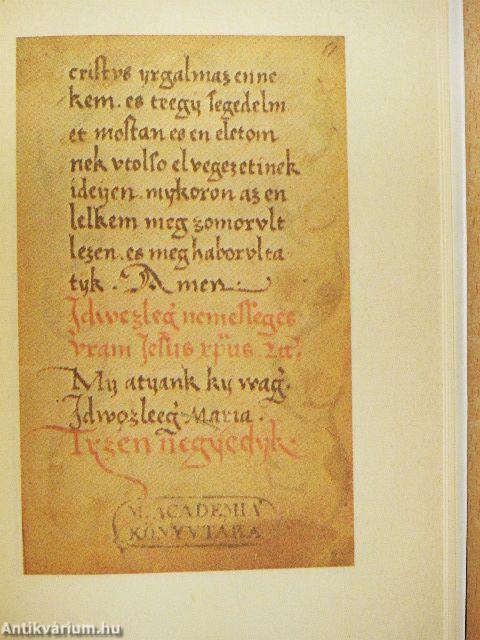 criſtus yrgalmaz enne
kem. es teegy ſegedelm
et moſtan es en eletom
nek vtolſo elvegezetinek
ideyen. mykoron az en
lelkem meg zomorvlt
lezen. es meg haborvlta
tyk. Amen.
Jdwezleǵ nemeſſeges
vram Jeſus xp̄us
My atyank ky waǵ.
Jdwozleeǵ Maria.
Tyzen neǵyedyk.
M. ACADEMIA
KÖNYVTÁRA
Antikvárium.hu